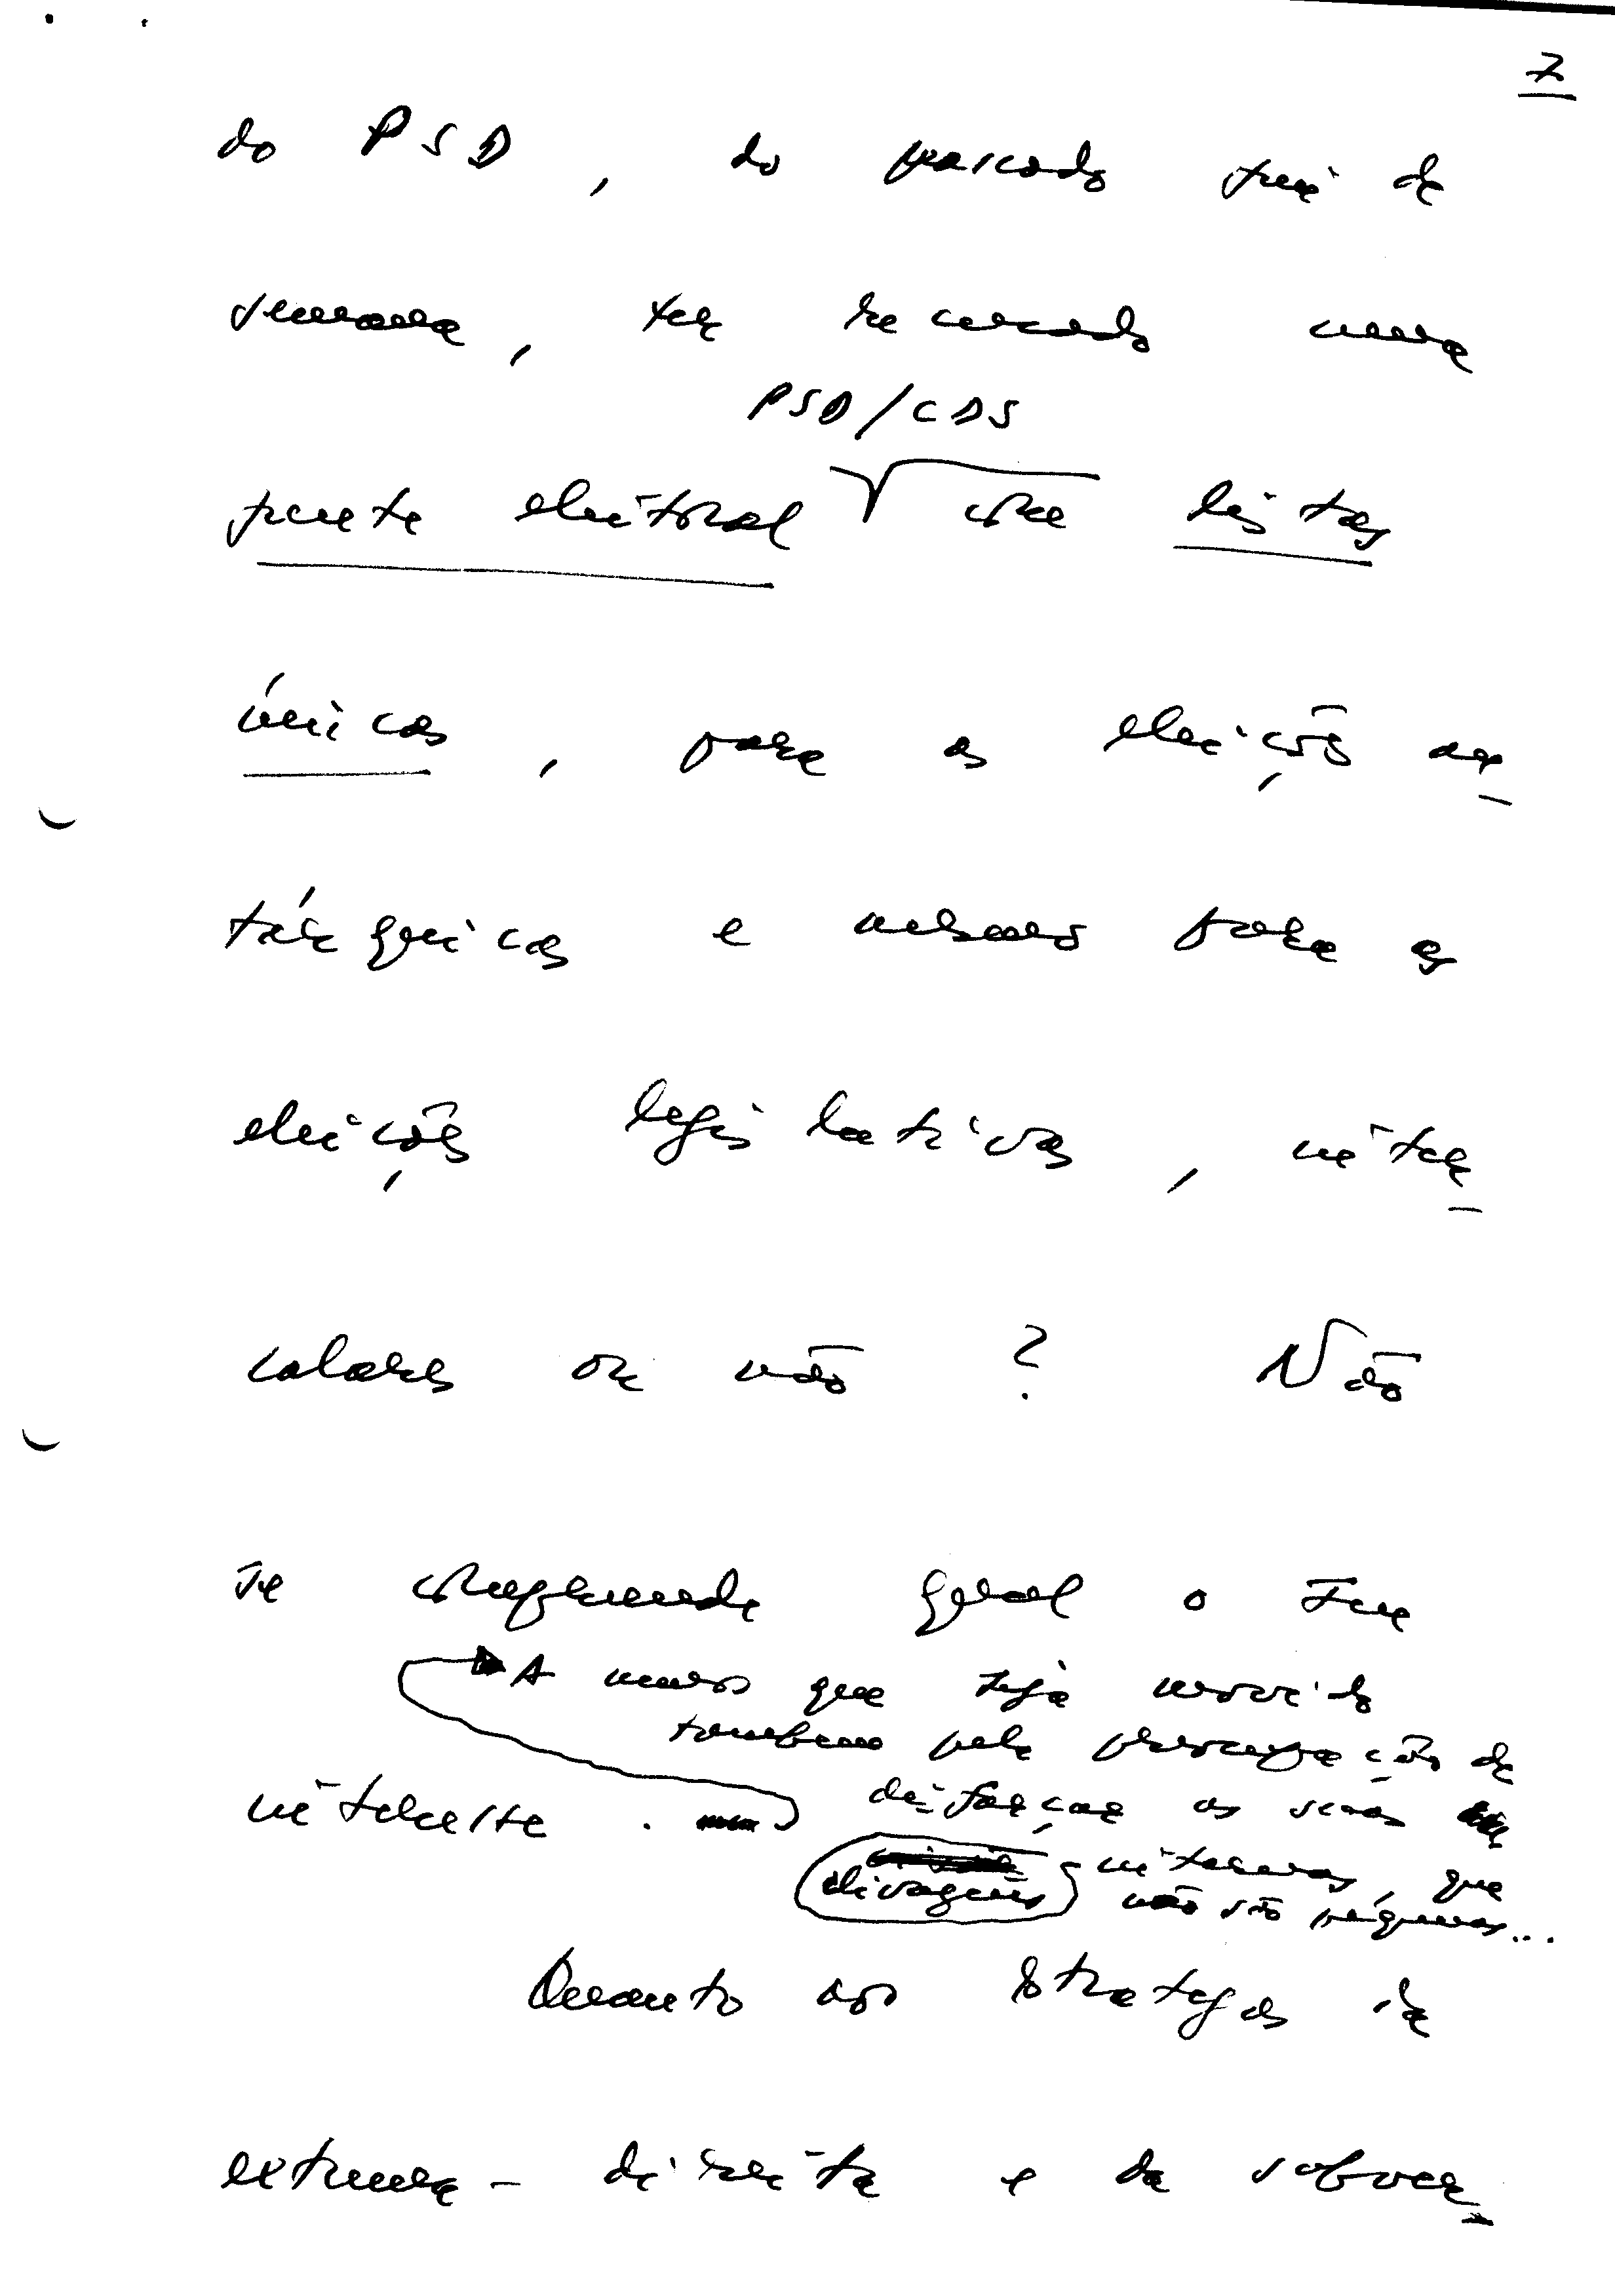 7
do PSD, do passado fim de
semana, ter recusado uma
PSD/CDS
frente eleitoral com listas
únicas, para as eleições au-
tárquicas e mesmo para as
eleições legislativas, inter-
calares ou não? Não
se compreende qual o seu
A menos que seja movido
também pela preocupação de
interesse. disfarçar as suas
divagens internas, que
não são pequenas...
Quanto aos estrategas da
extrema-direita e da subver-